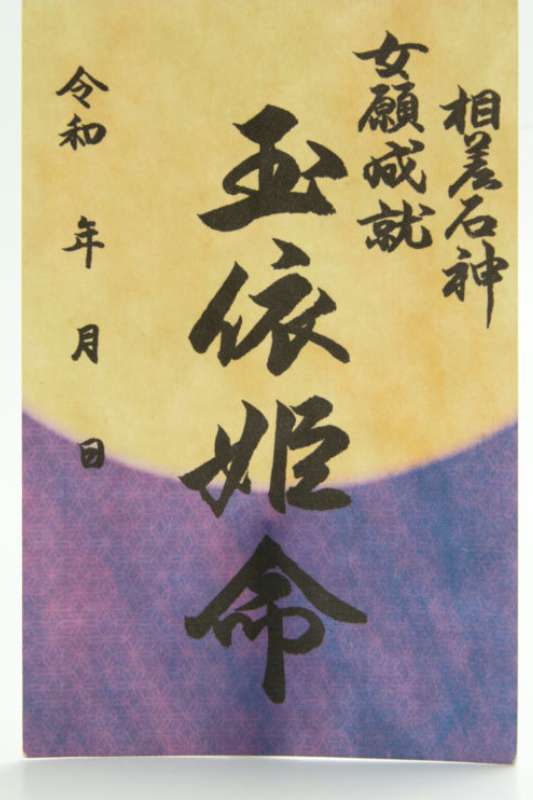 相差石神
女願成就
玉依姫命
令和 年 月 日